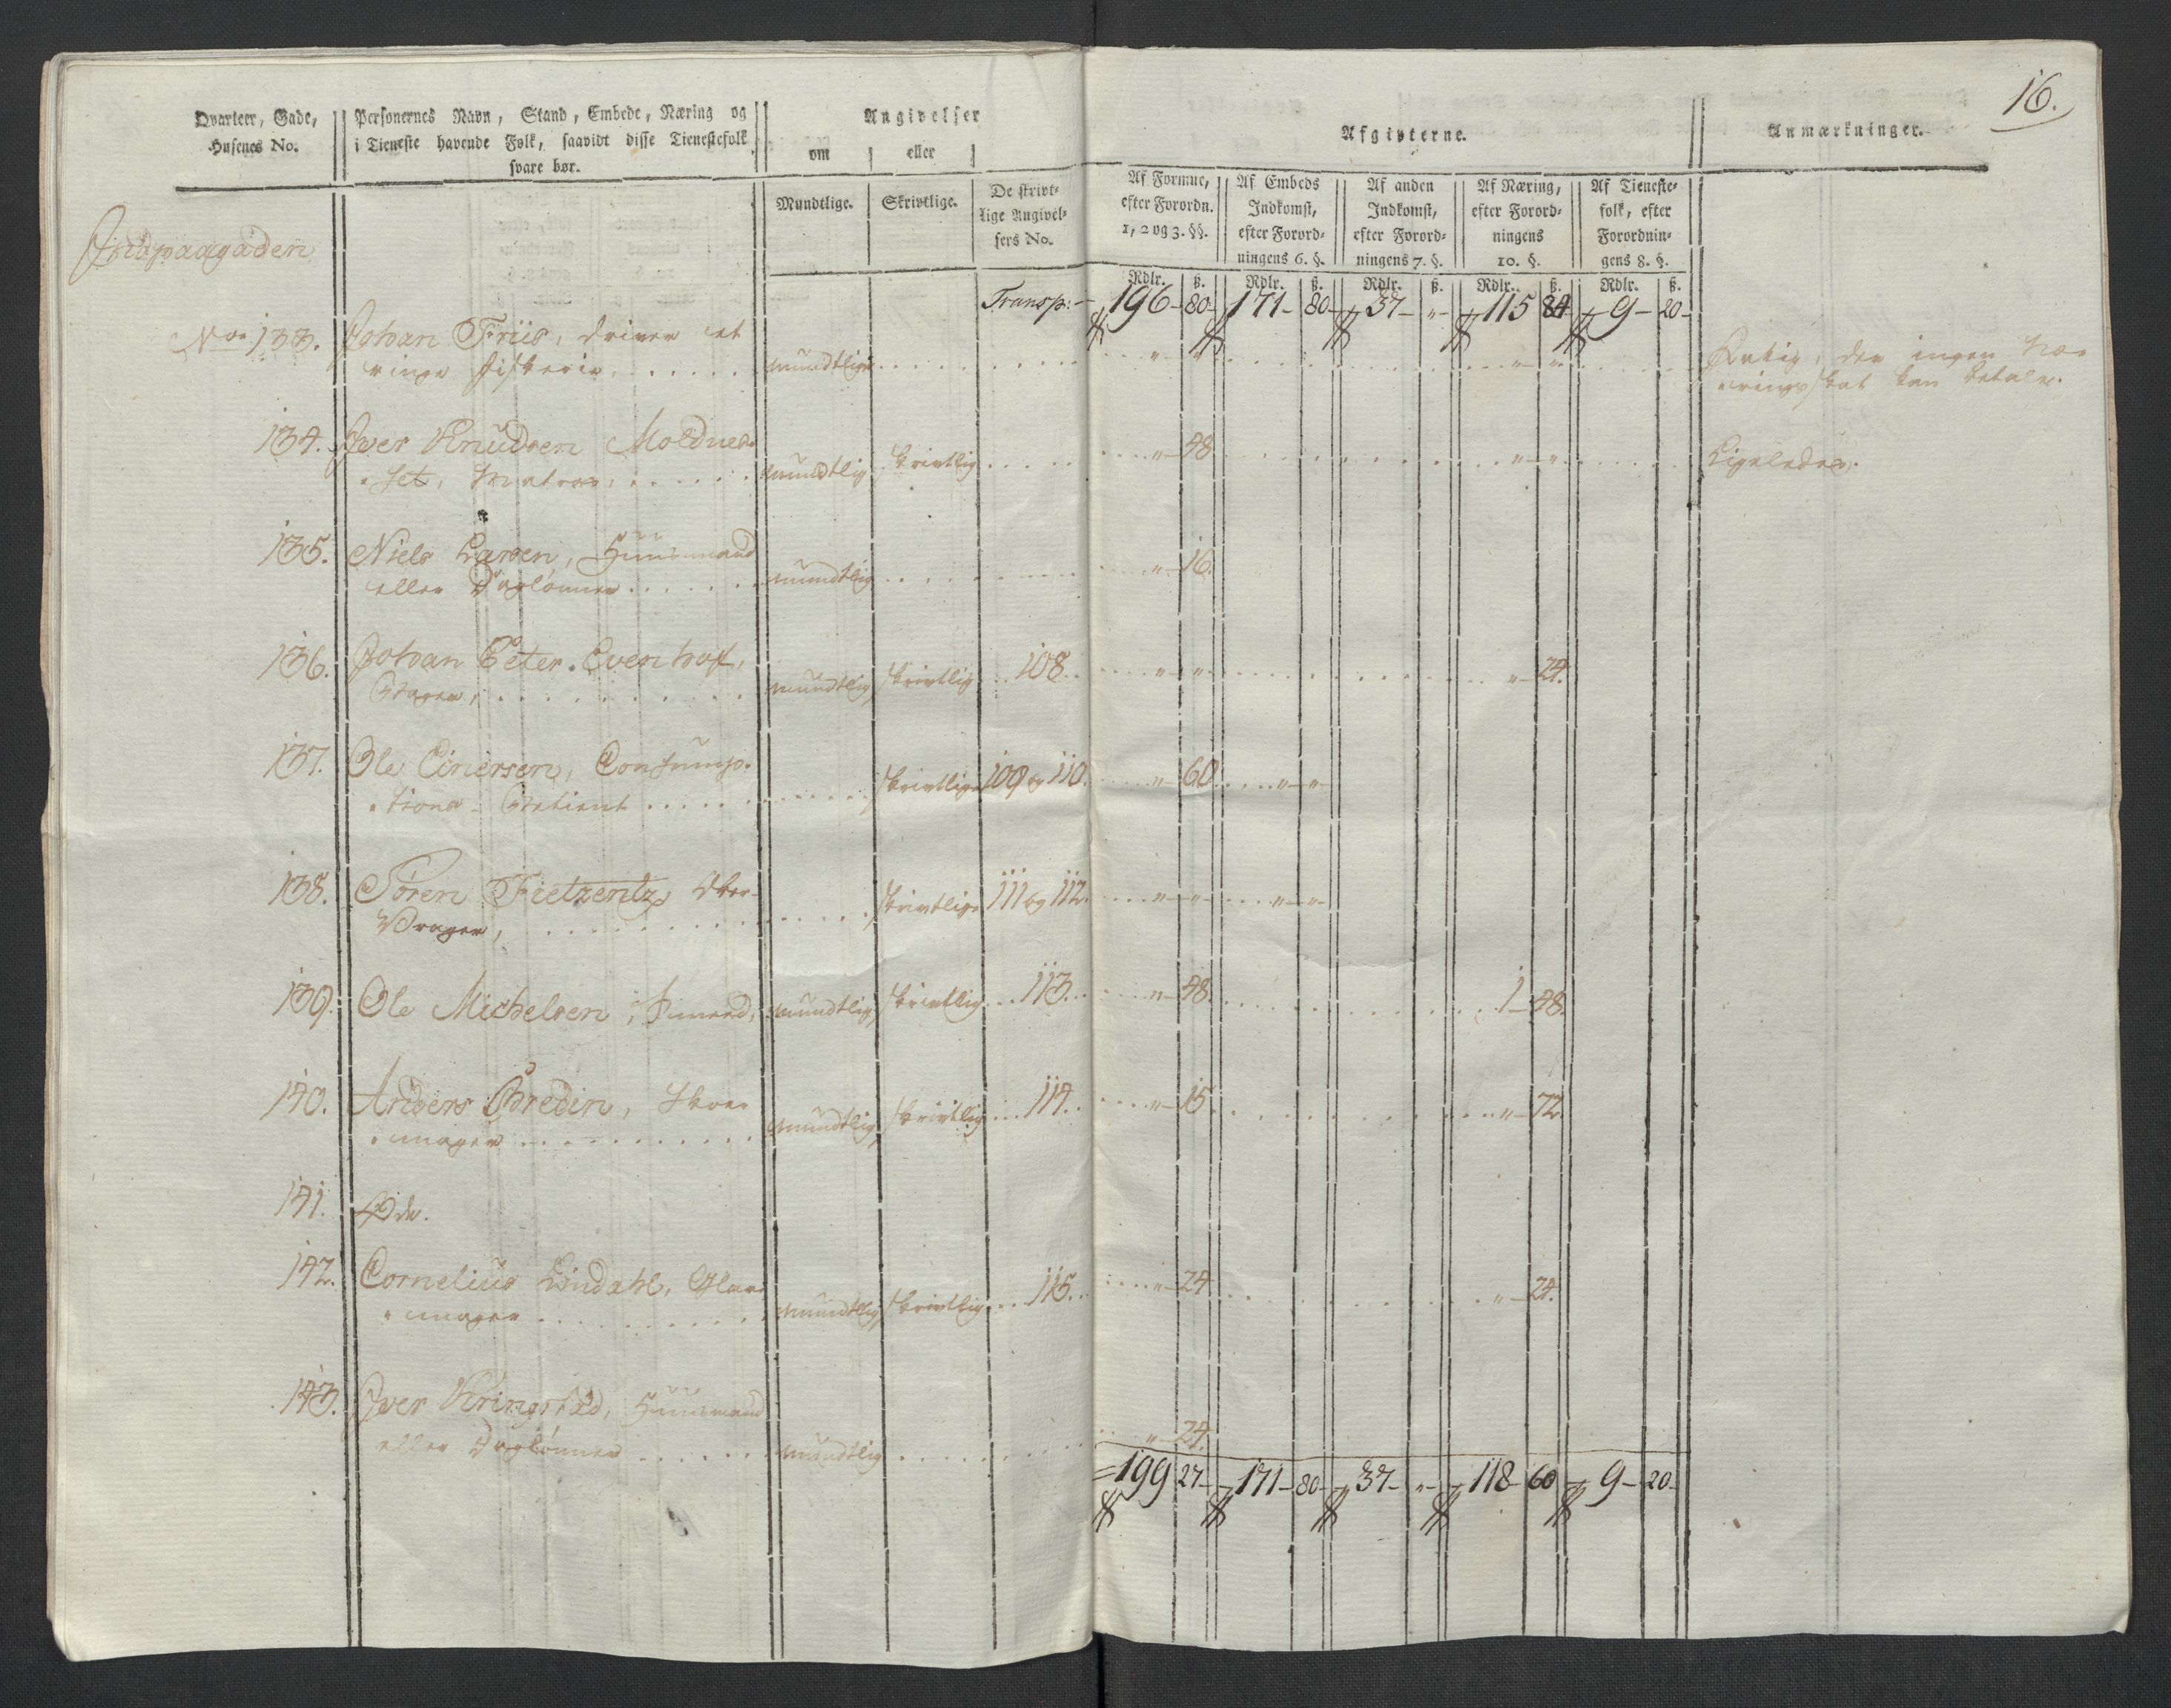 16.
Qvarteer, Gade,
Husenes No.
Personernes Navn, Stand, Embede, Næring og
i Tieneste havende Folk, saavidt disse Tienestefolk
svare bør.
Angivelser
om eller
Mundtlige. Skrivtlige. De skrivt-
lige Angivel-
sers No.
Afgivterne.
Af Formue,
efter Forordn.
1, 2 og 3. §§.
Af Embeds
Indkomst,
efter Forord-
ningens 6. §.
Af anden
Indkomst,
efter Forord-
ningens 7. §.
Af Næring,
efter Forord-
ningens
10. §.
Af Tieneste-
folk, efter
Forordnin-
gens 8. §.
Anmærkninger.
Rdlr. ß. Rdlr. ß. Rdlr. ß. Rdlr. ß. Rdlr. ß.
Transp: 196 - 80 - 171 - 80 - 37 - " - 115 84 9 - 20 -
Noe 133. Johan Friis, driver et
ringe fiskerie, mundtlige " " " " , der ingen Næ-
ringsskat kan betale.
134. Iver Knudsen Moldnes-
set, Matros, mundtlig skrivtlig " - 48 " - " Ligeledes.
135. Niels Larsen, Huusmand
eller Daglønner mundtlig " - 16.
136. Johan Peter Evenhoff,
mundtlig, skrivtlig 108 " - " " - 24.
137. Ole Einersen, Consump-
tions-Betient skrivtlige 109 og 110. " - 60 " - "
138. Søren Fietzentz, Over-
Vrager, skrivtlige 111 og 112 " - " " - "
139. Ole Michelsen, mundtlig, skrivtlig 113. " - 48. 1 - 48.
140. Anders Bredin, Skoe-
mager mundtlig, skrivtlig 114. " - 15 " - 72
141. Øde.
142. Cornelius Lindahl, Glar-
mager mundtlig, skrivtlig 115. " - 24 " - 24.
143. Iver Kringstad, Huusmand
eller Daglønner mundtlig " - 24.
199 27 - 171 - 80 - 37 - " - 118 60 9 - 20 -